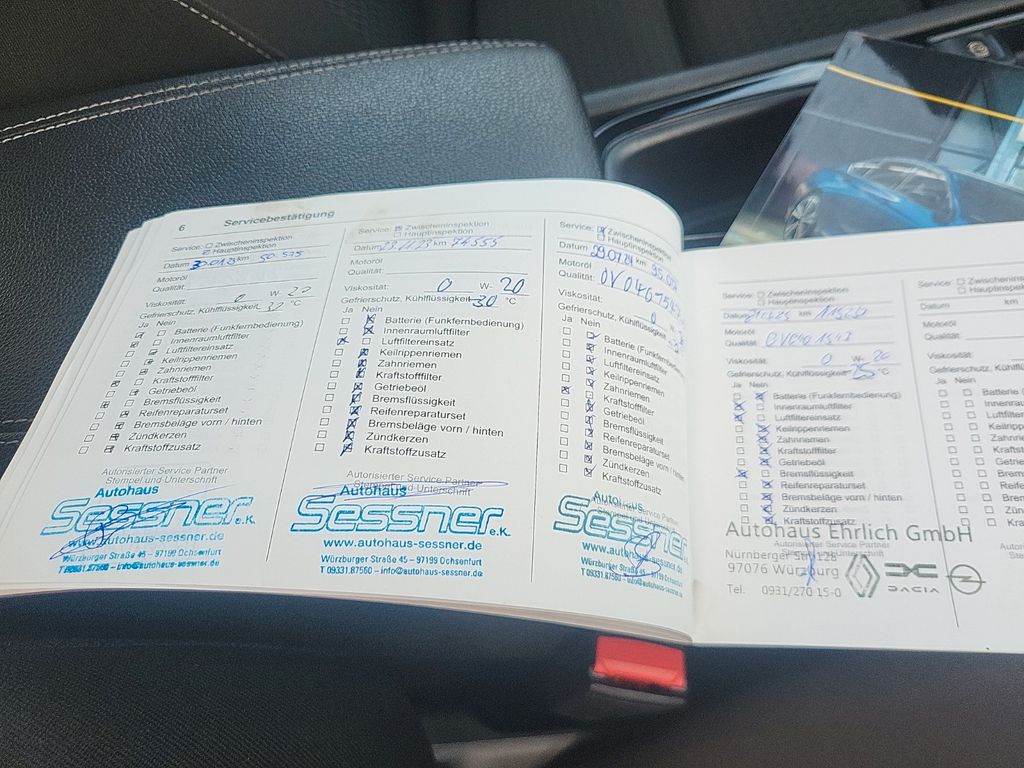 6 Servicebestätigung
Service: Zwischeninspektion
Hauptinspektion
Datum 30.01.23 km 50.575
Motoröl
Qualität:
Viskosität: 0 W- 20
Gefrierschutz, Kühlflüssigkeit
Ja Nein
Batterie (Funkfernbedienung)
Innenraumluftfilter
Luftfiltereinsatz
Keilrippenriemen
Zahnriemen
Kraftstofffilter
Getriebeöl
Bremsflüssigkeit
Reifenreparaturset
Bremsbeläge vorn / hinten
Zündkerzen
Kraftstoffzusatz
Autorisierter Service Partner
Stempel und Unterschrift
Autohaus
Sessner e.K.
www.autohaus-sessner.de
Würzburger Straße 45 – 97199 Ochsenfurt
T 09331.87560 – info@autohaus-sessner.de
Service: Zwischeninspektion
Hauptinspektion
Datum 23.11.23 km 74555
Motoröl
Qualität:
Viskosität: 0 W- 20
Gefrierschutz, Kühlflüssigkeit -30 °C
Ja Nein
Batterie (Funkfernbedienung)
Innenraumluftfilter
Luftfiltereinsatz
Keilrippenriemen
Zahnriemen
Kraftstofffilter
Getriebeöl
Bremsflüssigkeit
Reifenreparaturset
Bremsbeläge vorn / hinten
Zündkerzen
Kraftstoffzusatz
Autorisierter Service Partner
Stempel und Unterschrift
Autohaus
Sessner e.K.
www.autohaus-sessner.de
Würzburger Straße 45 – 97199 Ochsenfurt
T 09331.87560 – info@autohaus-sessner.de
Service: Zwischeninspektion
Hauptinspektion
Datum 29.07.24 km
Motoröl
Qualität:
Viskosität: 0
Gefrierschutz, Kühlflüssigkeit
Ja Nein
Batterie (Funkfernbedienung)
Innenraumluftfilter
Luftfiltereinsatz
Keilrippenriemen
Zahnriemen
Kraftstofffilter
Getriebeöl
Bremsflüssigkeit
Reifenreparaturset
Bremsbeläge vorn / hinten
Zündkerzen
Kraftstoffzusatz
Autorisierter Service Partner
Stempel und Unterschrift
Autohaus
Sessner
www.autohaus-sessner.de
Würzburger Straße 45 – 97199 Ochsenfurt
T 09331.87560 – info@autohaus-sessner.de
Service: Zwischeninspektion
Hauptinspektion
Datum km
Motoröl
Qualität:
Viskosität: 0 W- 20
Gefrierschutz, Kühlflüssigkeit -25 °C
Ja Nein
Batterie (Funkfernbedienung)
Innenraumluftfilter
Luftfiltereinsatz
Keilrippenriemen
Zahnriemen
Kraftstofffilter
Getriebeöl
Bremsflüssigkeit
Reifenreparaturset
Bremsbeläge vorn / hinten
Zündkerzen
Kraftstoffzusatz
Autorisierter Service Partner
Stempel und Unterschrift
Autohaus Ehrlich GmbH
Nürnberger Str. 128
97076 Würzburg
Tel. 0931/270 15-0
DACIA
Service: Zwischeninspektion
Hauptinspektion
Datum km
Motoröl
Qualität:
Viskosität:
Gefrierschutz, Kühlflüssigkeit
Ja Nein